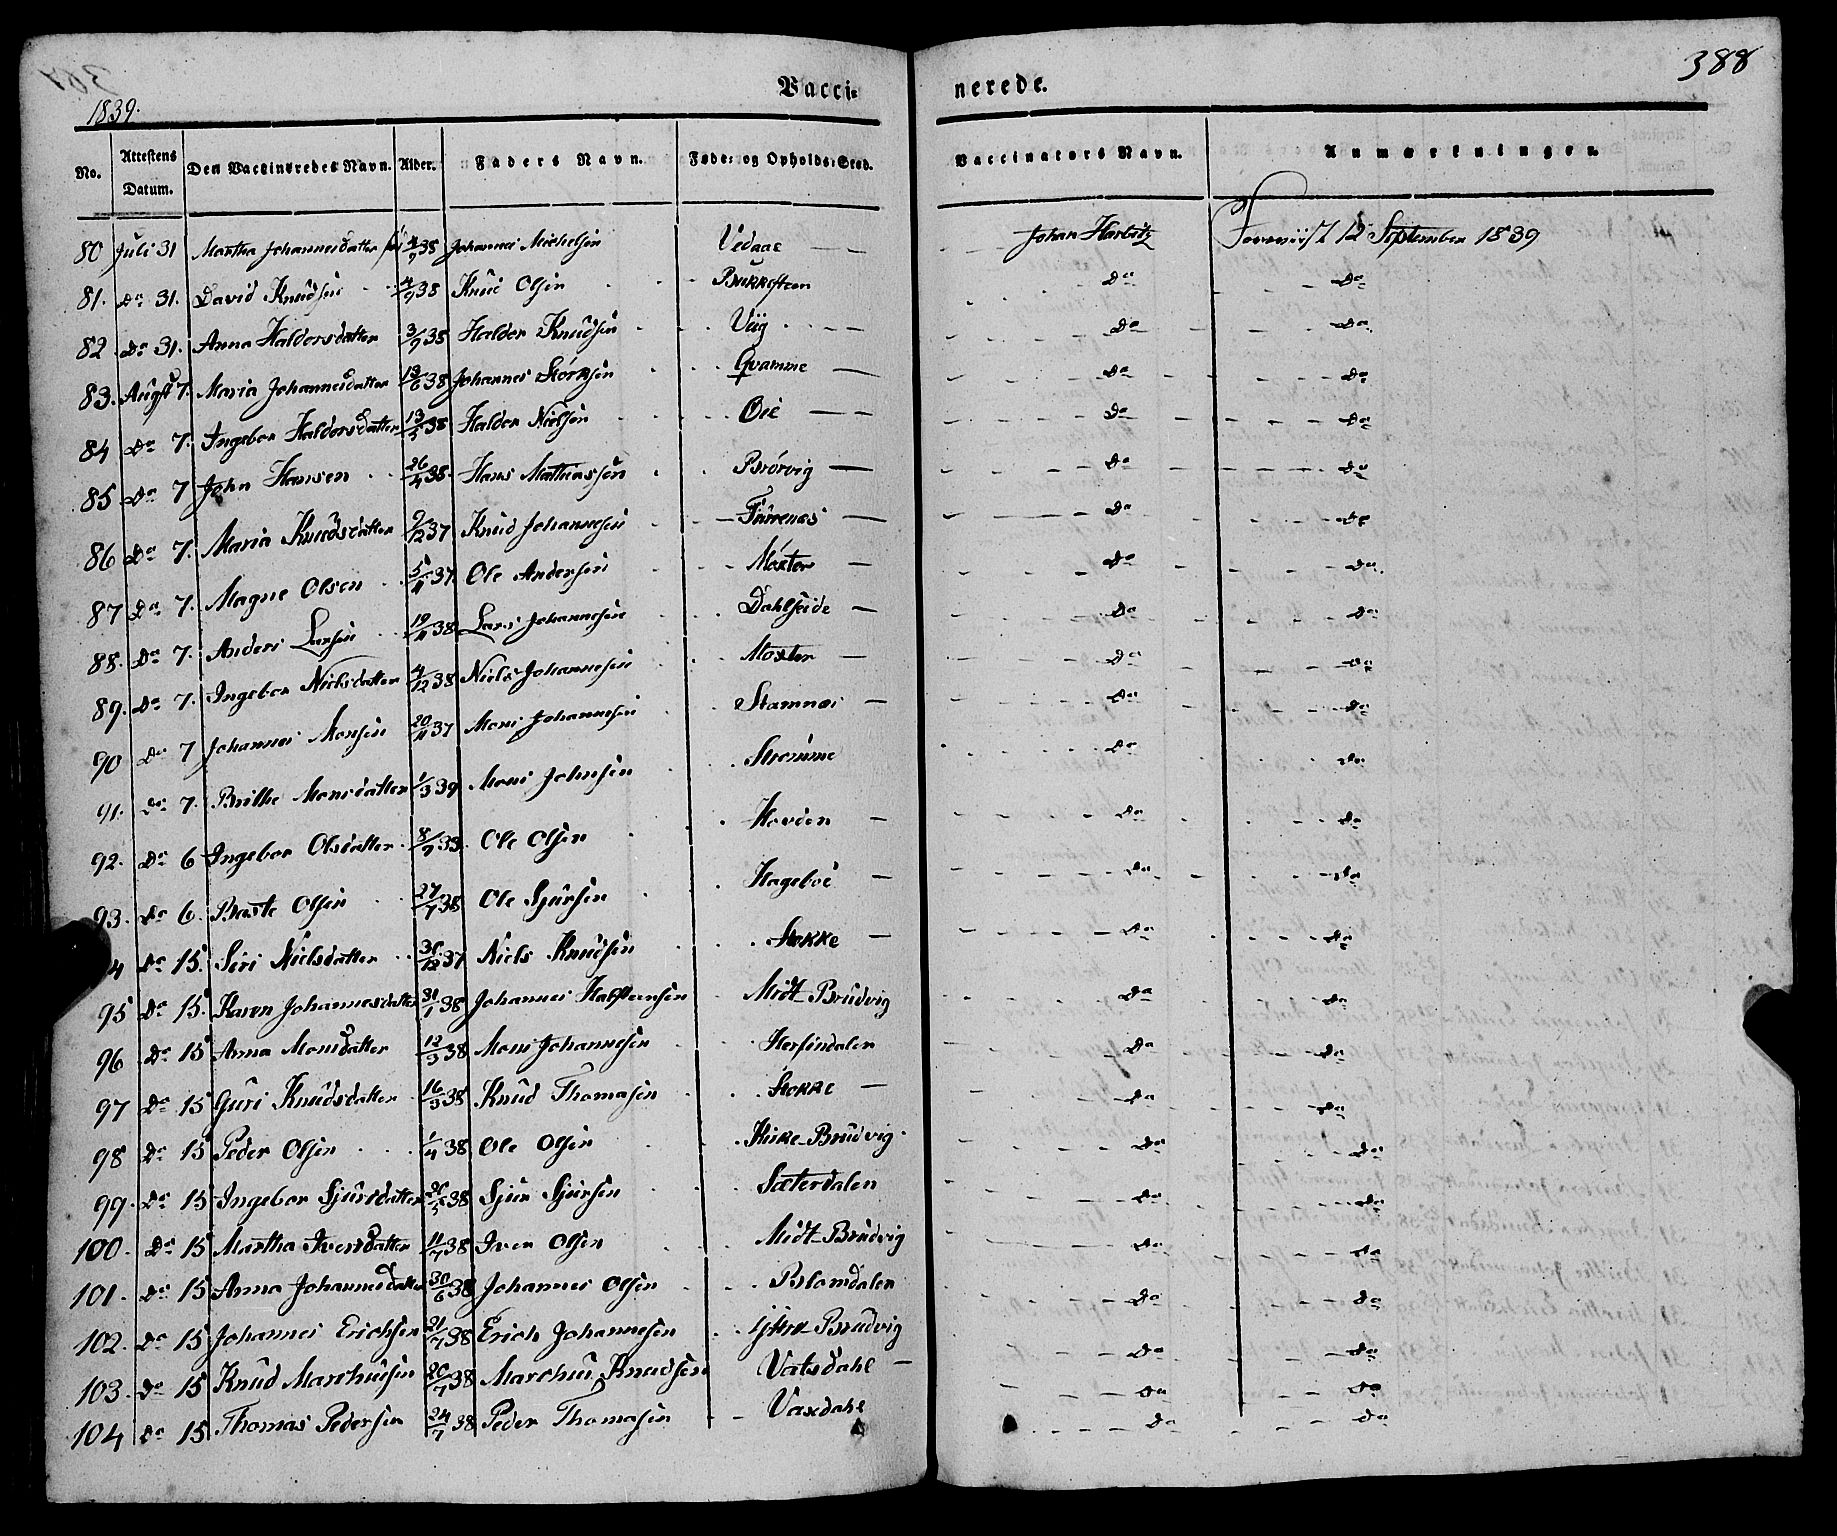 388
1839.
Vacci= nerede.
No. Attestens Datum. Den Vaccineredes Navn. Alder. Faders Navn. Føde= og Opholds=Sted. Vaccinators Navn. Anmærkninger.
80 Juli 31 Martha Johannesdatter 4/9 38 Johannes Michelsen Vedaae Johan Harbitz Foreviist 12 September 1839
81. Do 31. David Knudsen 4/9 38 Knud Olsen Brekkesteen Do Do
82 Do 31. Anna Haldorsdatter 3/9 38 Haldor Knudsen Viig Do Do
83. Augst 7. Maria Johannesdatter 13/6 38 Johannes Størksen Qvamme Do Do
84 Do 7. Ingebor Haldorsdatter 13/5 38 Haldor Nielsen Øie Do Do
85 Do 7 John Hansen 26/4 38 Hans Mathiassen Brørvig Do Do
86 Do 7. Maria Knudsdatter 9/12 37 Knud Johannesen Furrenæs Do Do
87 Do 7. Magne Olsen 5/11 37. Ole Andersen Moxter Do Do
88. Do 7. Anders Larsen 19/11 38 Lars Johannesen Dahlseide Do Do
89. Do 7. Ingebor Nielsdatter 4/12 38 Niels Johannesen Moxter Do Do
90 Do 7 Johannes Monsen 20/11 37 Mons Johannesen Stamnæs Do Do
91. Do 7. Brithe Monsdatter 1/3 39 Mons Johnsen Strømme Do Do
92. Do 6 Ingebor Olsdatter 8/9 33. Ole Olsen Hovden Do Do
93. Do 6. Baste Olsen 27/7 38 Ole Sjursen Hageboe Do Do
4 Do 15. Siri Nielsdatter 31/12 37 Niels Knudsen Stokke Do Do
95 Do 15. Karen Johannesdatter 31/1 38 Johannes Halsteensen Midt-Brudvig Do Do
96 Do 15 Anna Monsdatter 12/3 38 Mons Johannesen Herfindalen Do Do
97 Do 15 Guri Knudsdatter 16/3 38 Knud Thomasen Stokke Do Do
98 Do 15 Peder Olsen 1/4 38 Ole Olsen Kirke-Brudvig. Do Do
99. Do 15 Ingebor Sjursdatter 26/5 38 Sjur Sjursen Sæterdalen Do Do
100. Do 15 Martha Iversdatter 11/7 38 Iver Olsen Midt-Brudvig Do Do
101. Do 15 Anna Johannesdatter 30/6 38 Johannes Olsen Blomdalen Do Do
102. Do 15 Johannes Erichsen 21/7 38 Erich Johannesen Ijttre-Brudvig Do Do
103. Do 15 Knud Marchusen 20/7 38 Marchus Knudsen Vatsdahl Do Do
104 Do 15 Thomas Pedersen 24/7 38 Peder Thomasen Vaxdahl Do Do